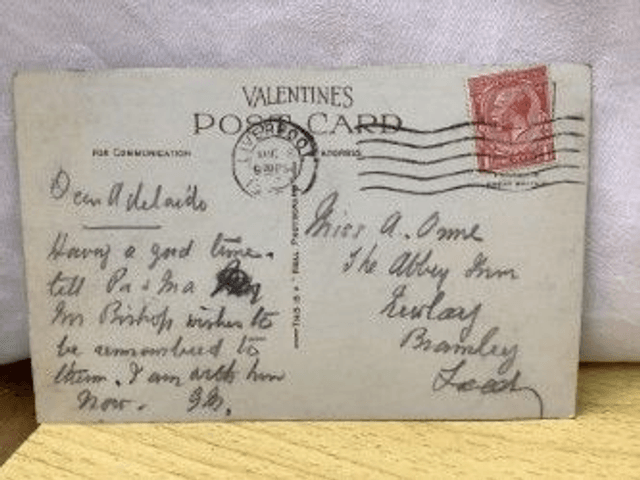 VALENTINES
POST CARD
FOR COMMUNICATION
ADDRESS
LIVERPOOL
Dear Adelaide
Having a good time.
tell Pa & Ma
Mr Bishop wishes to
be remembered to
them. I am with him
Now.
THIS IS A REAL PHOTOGRAPH
Miss A. Orme
The Abbey Inn
Newlay
Bramley
Leeds